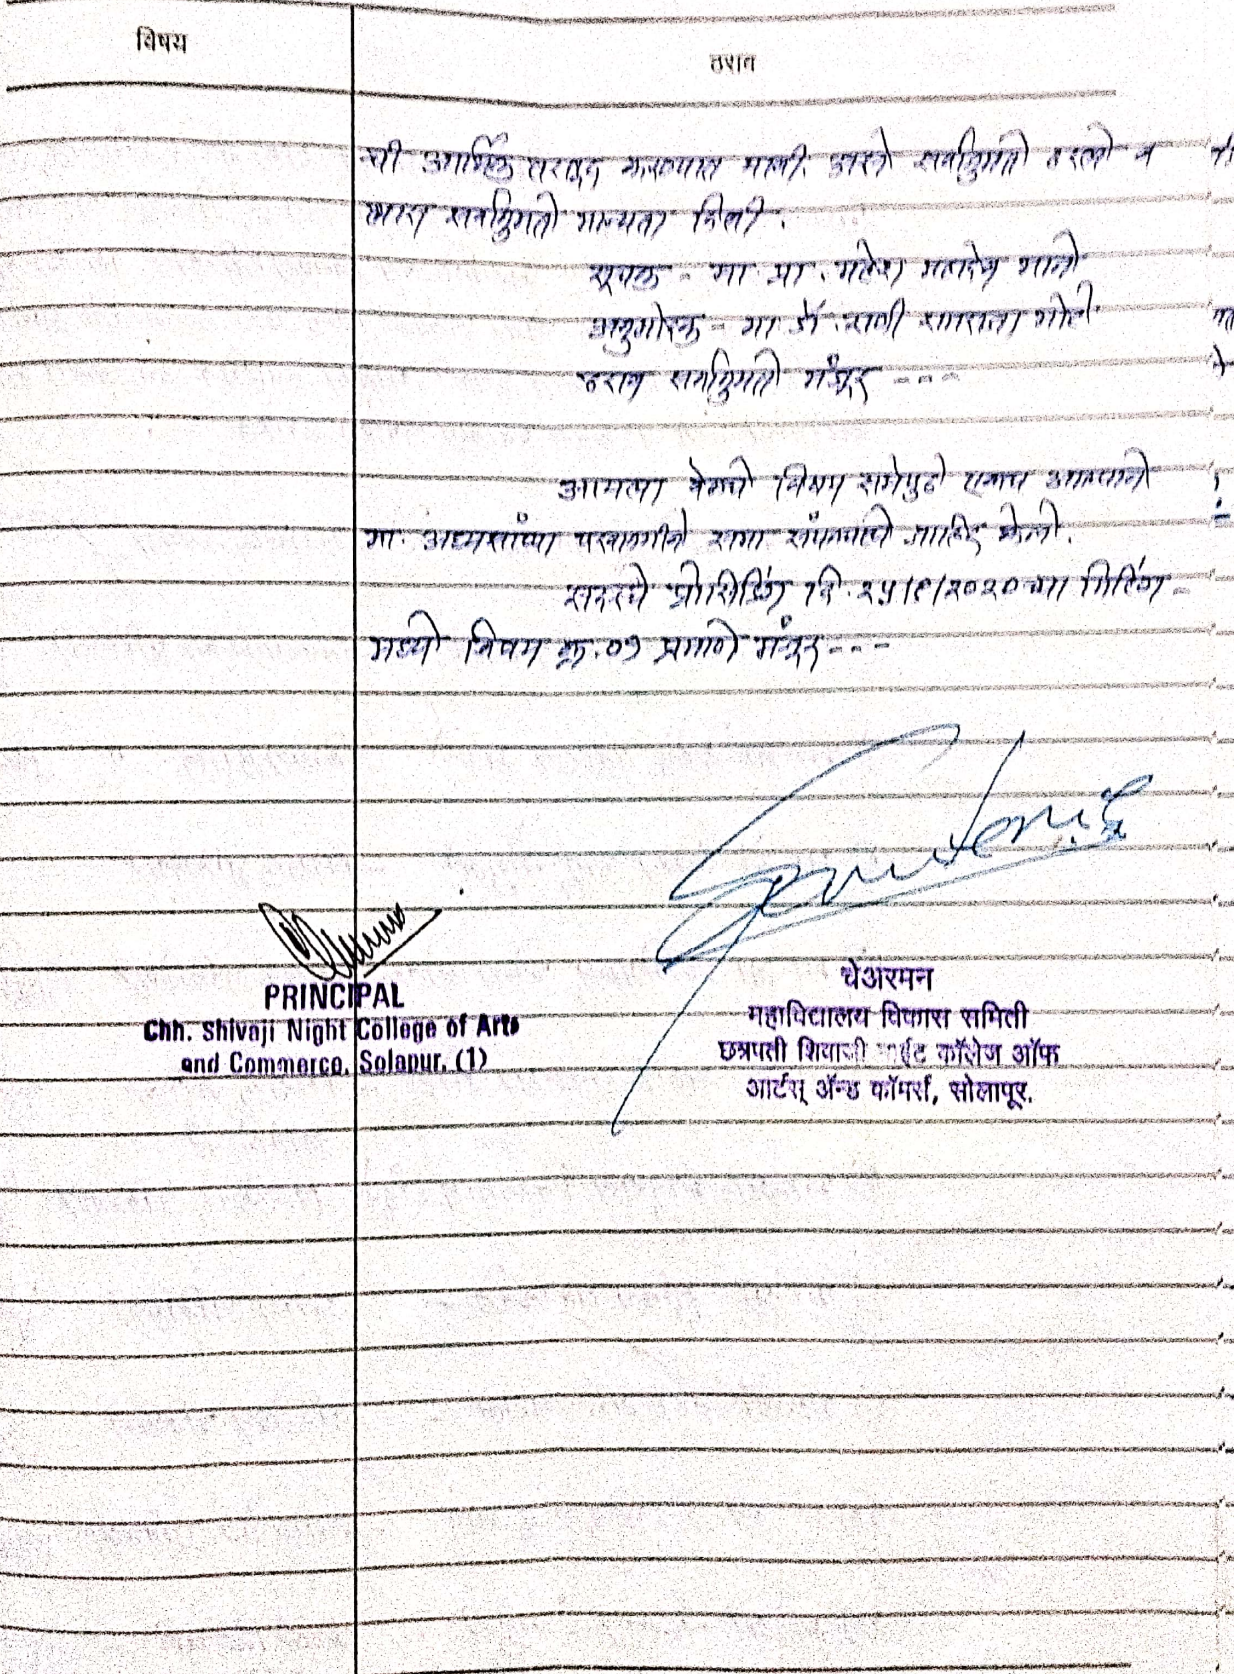 विषय
ठराव
ची आर्थिक तरतूद करण्यात यावी. असे सर्वानुमते ठरले व
त्यास सर्वानुमते मान्यता दिली.
सूचक - मा. प्रा. महेश महादेव माने
अनुमोदक - मा. डॉ.
ठराव सर्वानुमते मंजूर ---
आयत्या वेळचे विषय सभेपुढे आल्याने
मा. अध्यक्षांच्या परवानगीने सभा संपल्याचे जाहिर केले.
सदरचे प्रोसिडिंग दि. २५/९/२०२० च्या मिटिंग-
मध्ये विषय क्र. ०१ प्रमाणे मंजूर ---
PRINCIPAL
Chh. Shivaji Night College of Arts
and Commerce, Solapur. (1)
चेअरमन
महाविद्यालय विकास समिती
छत्रपती शिवाजी नाईट कॉलेज ऑफ
आर्टस् ॲन्ड कॉमर्स, सोलापूर.